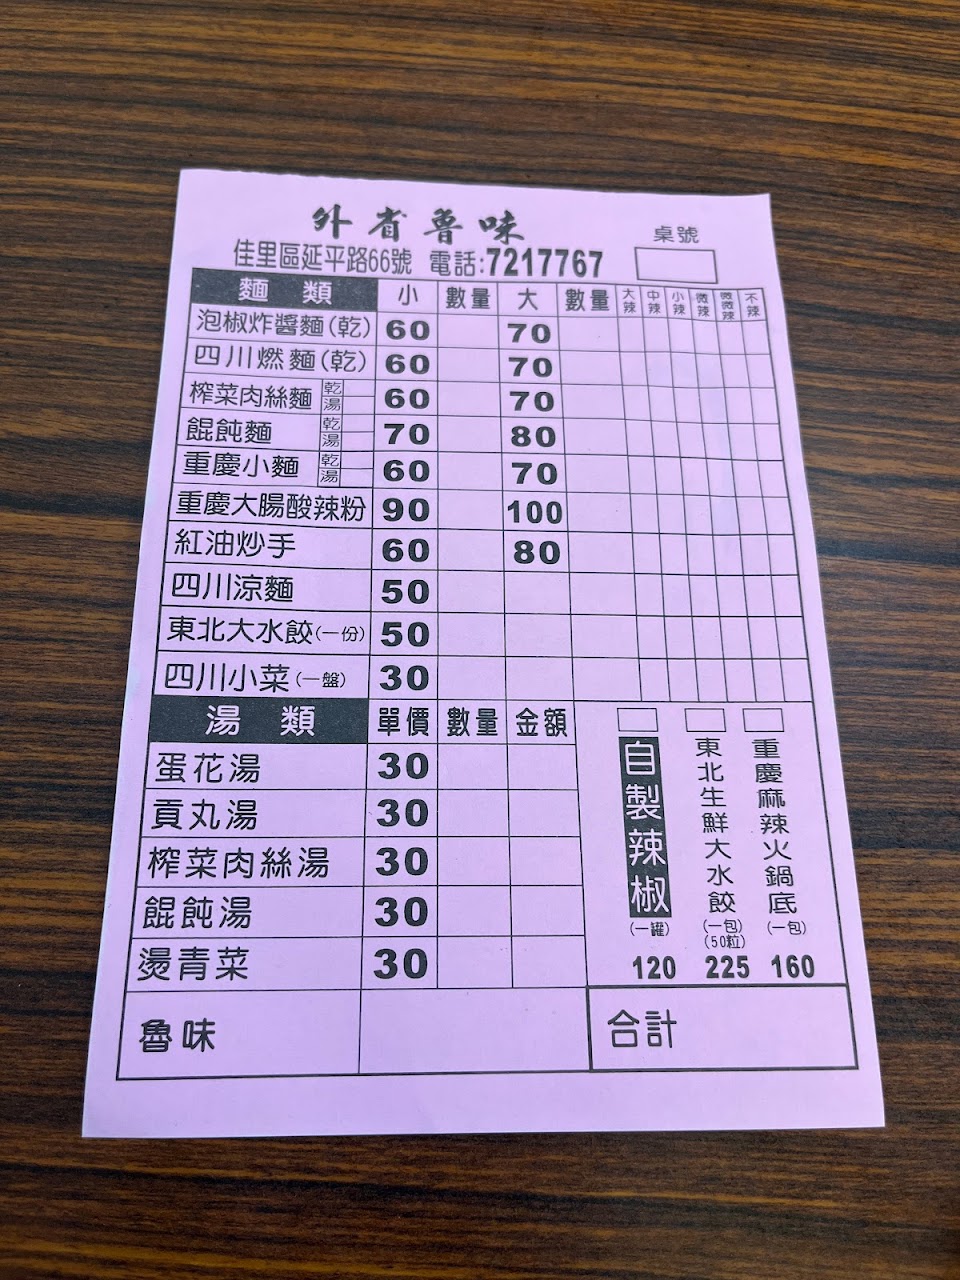 外省魯味
桌號
佳里區延平路66號 電話:7217767
麵類 小 數量 大 數量 大辣 中辣 小辣 微辣 微微辣 不辣
泡椒炸醬麵(乾) 60 70
四川燃麵(乾) 60 70
榨菜肉絲麵 乾 湯 60 70
餛飩麵 乾 湯 70 80
重慶小麵 乾 湯 60 70
重慶大腸酸辣粉 90 100
紅油炒手 60 80
四川涼麵 50
東北大水餃(一份) 50
四川小菜(一盤) 30
湯類 單價 數量 金額
蛋花湯 30
貢丸湯 30
榨菜肉絲湯 30
餛飩湯 30
燙青菜 30
自製辣椒(一罐) 120
東北生鮮大水餃(一包)(50粒) 225
重慶麻辣火鍋底(一包) 160
魯味
合計